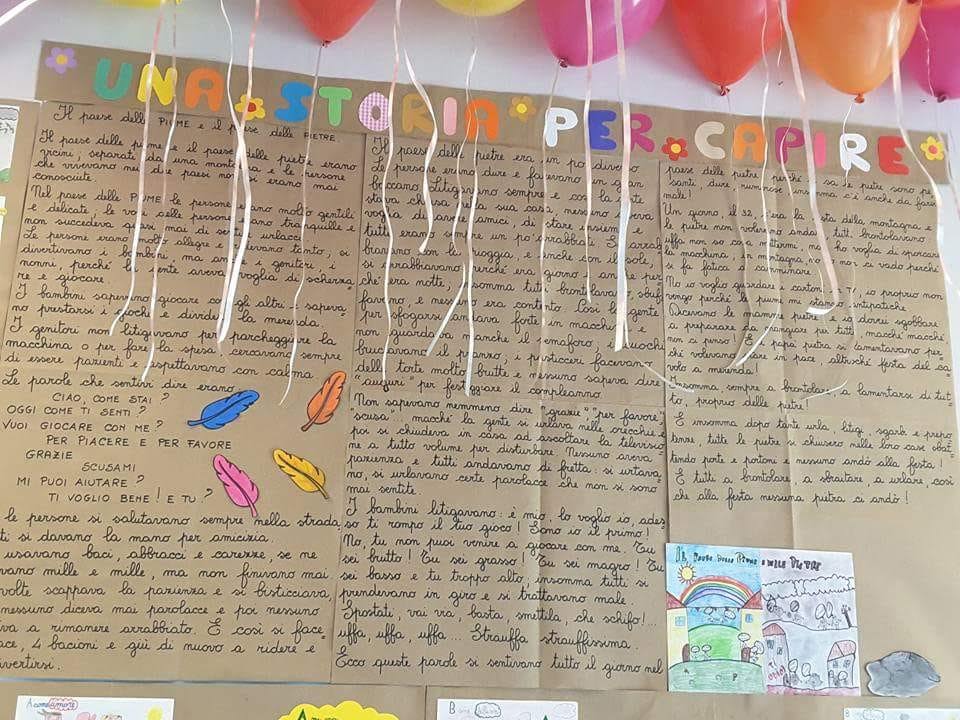 UNA STORIA PER CAPIRE
Il paese delle PIUME e il paese delle PIETRE.
Il paese delle piume e il paese delle pietre erano
vicini, separati da una montagna e le persone
che vivevano nei due paesi non si erano mai
conosciute.
Nel paese delle PIUME le persone erano molto gentili
e delicate, le voci delle persone erano tranquille e
non succedeva quasi mai di sentire urlacci.
Le persone erano molto allegre e ridevano tanto, si
divertivano i bambini, ma anche i genitori, i
nonni, perché la gente aveva voglia di scherza
re e giocare.
I bambini sapevano giocare con gli altri: sapeva
no prestarsi i giochi e dividere la merenda.
I genitori non litigavano per parcheggiare la
macchina o per fare la spesa: cercavano sempre
di essere pazienti e aspettavano con calma.
Le parole che sentivi dire erano
CIAO, COME STAI?
OGGI COME TI SENTI?
VUOI GIOCARE CON ME?
PER PIACERE E PER FAVORE
GRAZIE
SCUSAMI
MI PUOI AIUTARE?
TI VOGLIO BENE! E TU?
le persone si salutavano sempre nella strada,
ti si davano la mano per amicizia.
usavano baci, abbracci e carezze, se ne
vano mille e mille, ma non finivano mai.
volte scappava la pazienza e si bisticciava,
nessuno diceva mai parolacce e poi nessuno
va a rimanere arrabbiato. E così si face
ace, 4 bacioni e giù di nuovo a ridere e
ivertirsi.
Il paese delle pietre era un po' diverso.
Le persone erano dure e facevano un gran
baccano, litigavano sempre e così la gente
stava chiusa nella sua casa, nessuno aveva
voglia di avere amici, di stare insieme e
tutti erano sempre un po' arrabbiati. Si arrab
biavano con la pioggia, e anche con il sole,
si arrabbiavano perché era giorno e anche per
ché era notte, insomma tutti brontolavano, sbuf
favano, e nessuno era contento. Così la gente
per sfogarsi andava forte in macchina e
non guardava neanche il semaforo, i cuochi
bruciavano il pranzo, i pasticceri facevano
delle torte molto brutte e nessuno sapeva dire
"auguri" per festeggiare il compleanno.
Non sapevano nemmeno dire "grazie" "per favore"
"scusa" macché la gente si urlava nelle orecchie e
poi si chiudeva in casa ad ascoltare la televisio
ne a tutto volume per disturbare. Nessuno aveva
pazienza e tutti andavano di fretta: si urtava
no, si urlavano certe parolacce che non si sono
mai sentite.
I bambini litigavano: è mio, lo voglio io, ades
so ti rompo il tuo gioco! Sono io il primo!
No, tu non puoi venire a giocare con me. Tu
sei brutto! Tu sei grasso! Tu sei magro! Tu
sei basso e tu troppo alto, insomma tutti si
prendevano in giro e si trattavano male.
Spostati, vai via, basta, smettila, che schifo!...
uffa, uffa, uffa... Strauffa strauffissima.
Ecco queste parole si sentivano tutto il giorno nel
paese delle pietre perché si sa, le pietre sono pe
santi, dure, rumorose insomma c'è anche da farsi
male!
Un giorno, il 32, c'era la festa della montagna e
le pietre non volevano andare, tutti brontolavano
uffa non so cosa mettermi, non ho voglia di sporcare
la macchina, in montagna, no io non ci vado perché
si fa fatica a camminare.
No io voglio guardare i cartoni in TV, io proprio non
vengo perché le piume mi stanno antipatiche.
Dicevano le mamme pietre: e io dovrei sgobbare
a preparare da mangiare per tutti, macché macché
non ci penso! E i papà pietra si lamentavano per
ché volevano stare in pace altroché festa del sa
volo a merenda!
Insomma, sempre a brontolare, a lamentarsi di tut
to, proprio delle pietre!
E insomma dopo tante urla, litigi, sgarbi e prepo
tenze, tutte le pietre si chiusero nelle loro case sbat
tendo porte e portoni e nessuno andò alla festa!
E tutti a brontolare, a sbraitare, a urlare, così
che alla festa nessuna pietra ci andò!
IL PAESE DELLE PIUME E DELLE PIETRE